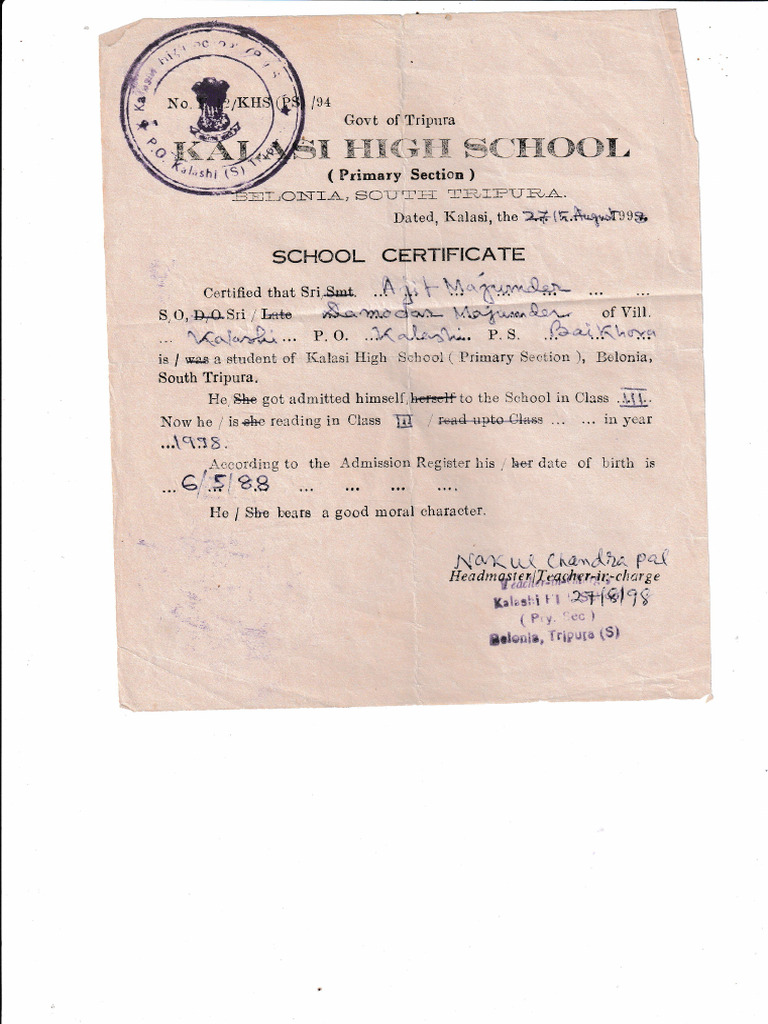 Kalasi High School
P.O. Kalashi (S) Tripura
No. /KHS (PS) /94
Govt of Tripura
KALASI HIGH SCHOOL
( Primary Section )
BELONIA, SOUTH TRIPURA.
Dated, Kalasi, the August 1998
SCHOOL CERTIFICATE
Certified that Sri Smt. ... Ajit Majumder ... ...
S,O, D.O. Sri / Late Damodar Majumder of Vill.
... Kalashi ... P. O. ...Kalashi.. P. S. ...Baikhora
is / was a student of Kalasi High School ( Primary Section ), Belonia,
South Tripura.
He, She got admitted himself, herself to the School in Class .III.
Now he / is she reading in Class III / read upto Class ... ... in year
...1998.
According to the Admission Register his / her date of birth is
... 6/5/88 ... ... ... ....
He / She bears a good moral character.
Nakul Chandra Pal
Headmaster/Teacher-in-charge
Teacher-in-charge
27/8/98
Kalashi H
( Pry. Sec )
Belonia, Tripura (S)